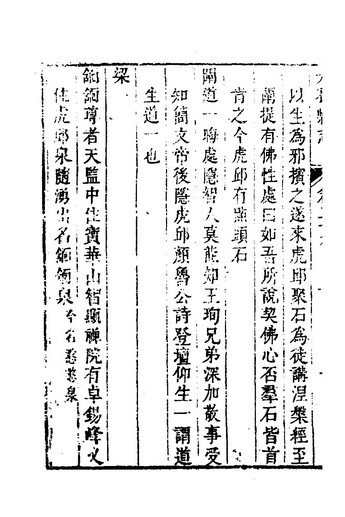 以生為邪擯之遂來虎邱聚石為徒講涅槃經至
闡提有佛性處曰如吾所說契佛心否羣石皆首
肯之今虎邱有點頭石
闍道一晦處隱智人莫能知王珣兄弟深加敬事受
知簡文帝後隱虎邱顏魯公詩登壇仰生一謂道
生道一也
梁
尊者天監中住寶華山智顯禪院有卓錫峰又
住虎邱泉隨湧出名泉今名憨憨泉